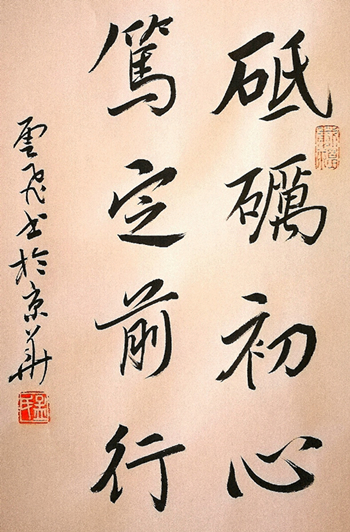 砥礪初心
篤定前行
雲飛書於京華